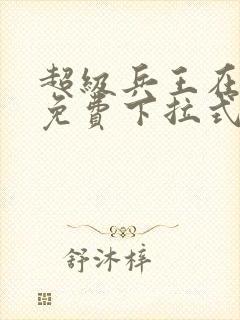 超级兵王在
免费下拉式
舒沐梓